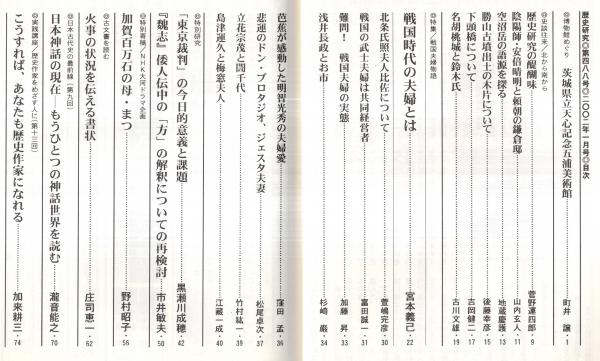 歴史研究◎第四八八号◎二〇〇二年一月号◎目次
◎博物館めぐり 茨城県立天心記念五浦美術館……町井 譲・1
◎史談往来／北から南から
歴史研究の醍醐味……菅野運四郎・9
陰陽師・安倍晴明と頼朝の鎌倉邸……山内玄人・11
空沼岳の語源を探る……地蔵慶護・13
勝山古墳出土の木片について……後藤幸彦・15
下頭橋について……吉岡健二・17
名胡桃城と鈴木氏……古川文雄・19
◎特集／戦国夫婦物語
戦国時代の夫婦とは……宮本義己・22
北条氏照夫人比佐について……萱嶋完彦・30
戦国の武士夫婦は共同経営者……富田誠一・31
難問！ 戦国夫婦の実態……加藤 昇・33
浅井長政とお市……杉崎 巌・34
芭蕉が感動した明智光秀の夫婦愛……窪田 孟・36
悲運のドン・プロタジオ、ジェスタ夫妻……松尾卓次・37
立花宗茂と誾千代……竹村紘一・39
島津運久と梅窓夫人……江蔵一成・40
◎特別研究
「東京裁判」の今日的意義と課題……黒瀬川成穂・42
『魏志』倭人伝中の「方」の解釈についての再検討……市井敏夫・50
◎特別寄稿／NHK大河ドラマ企画
加賀百万石の母・まつ……野村昭子・56
◎古文書を読む
火事の状況を伝える書状……庄司恵一・62
◎日本古代史の最前線（第九回）
日本神話の現在―もうひとつの神話世界を読む……瀧音能之・70
◎実践講座／歴史作家をめざす人に（第十三回）
こうすれば、あなたも歴史作家になれる……加来耕三・74